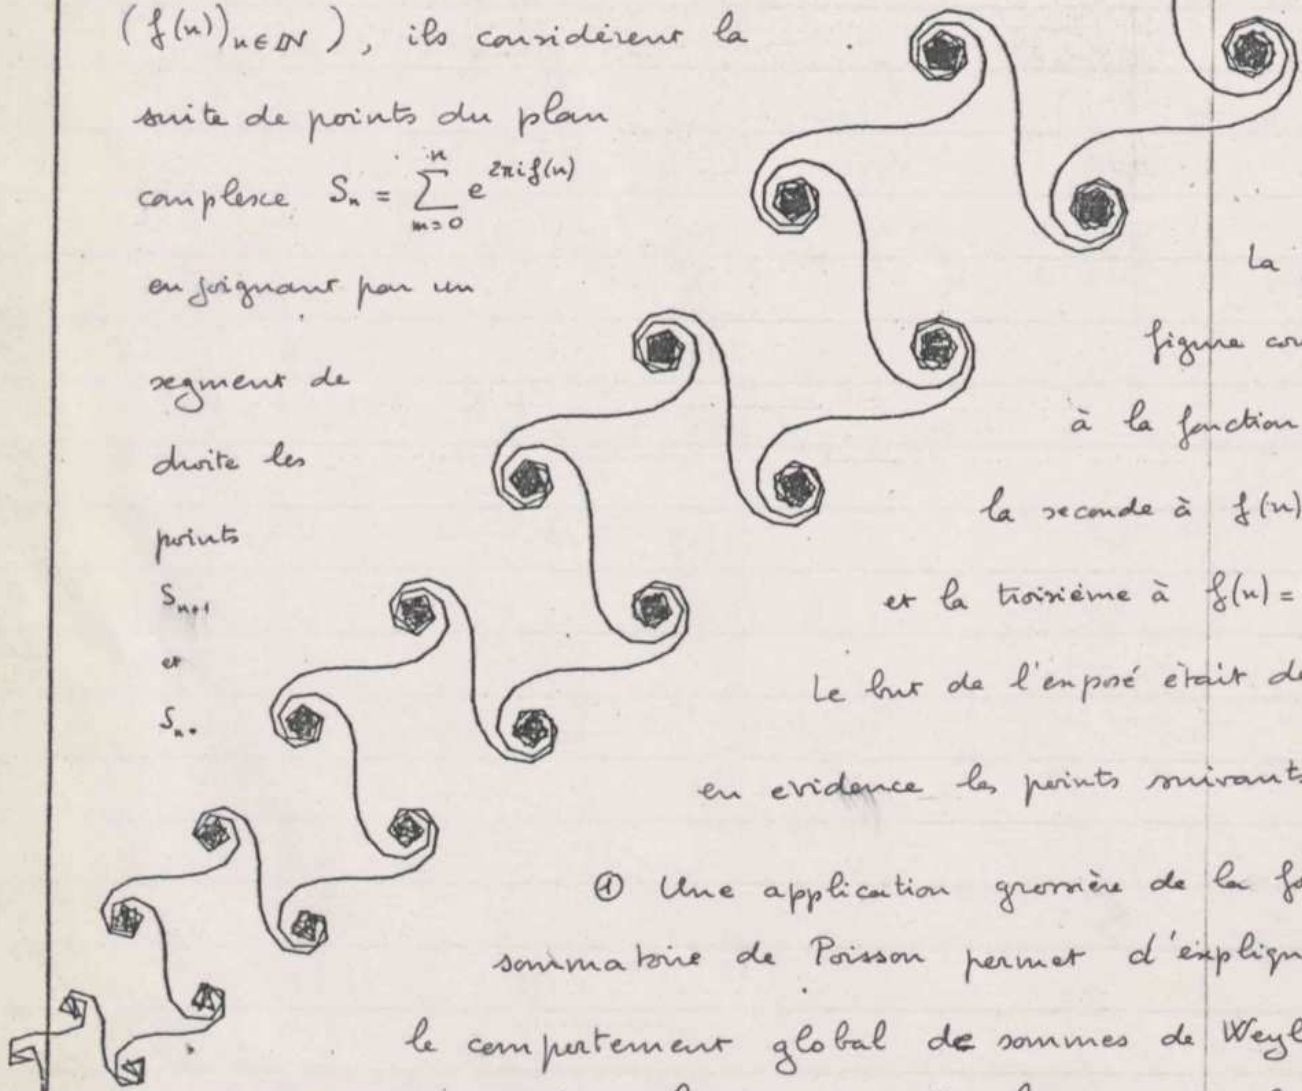 (f(n))n∈ℕ), ils considèrent la
suite de points du plan
complexe Sₙ = ∑_{m=0}^{n} e^{2πif(n)}
en joignant par un
La
segment de
figure
à la fonction
droite les
la seconde à f(n)
points
Sₙ₊₁
et la troisième à f(n) =
et
Le but de l'exposé était de
Sₙ.
en evidence les points suivants
① Une application grossière de la
sommatoire de Poisson permet d'expliqu
le comportement global de sommes de Weyl